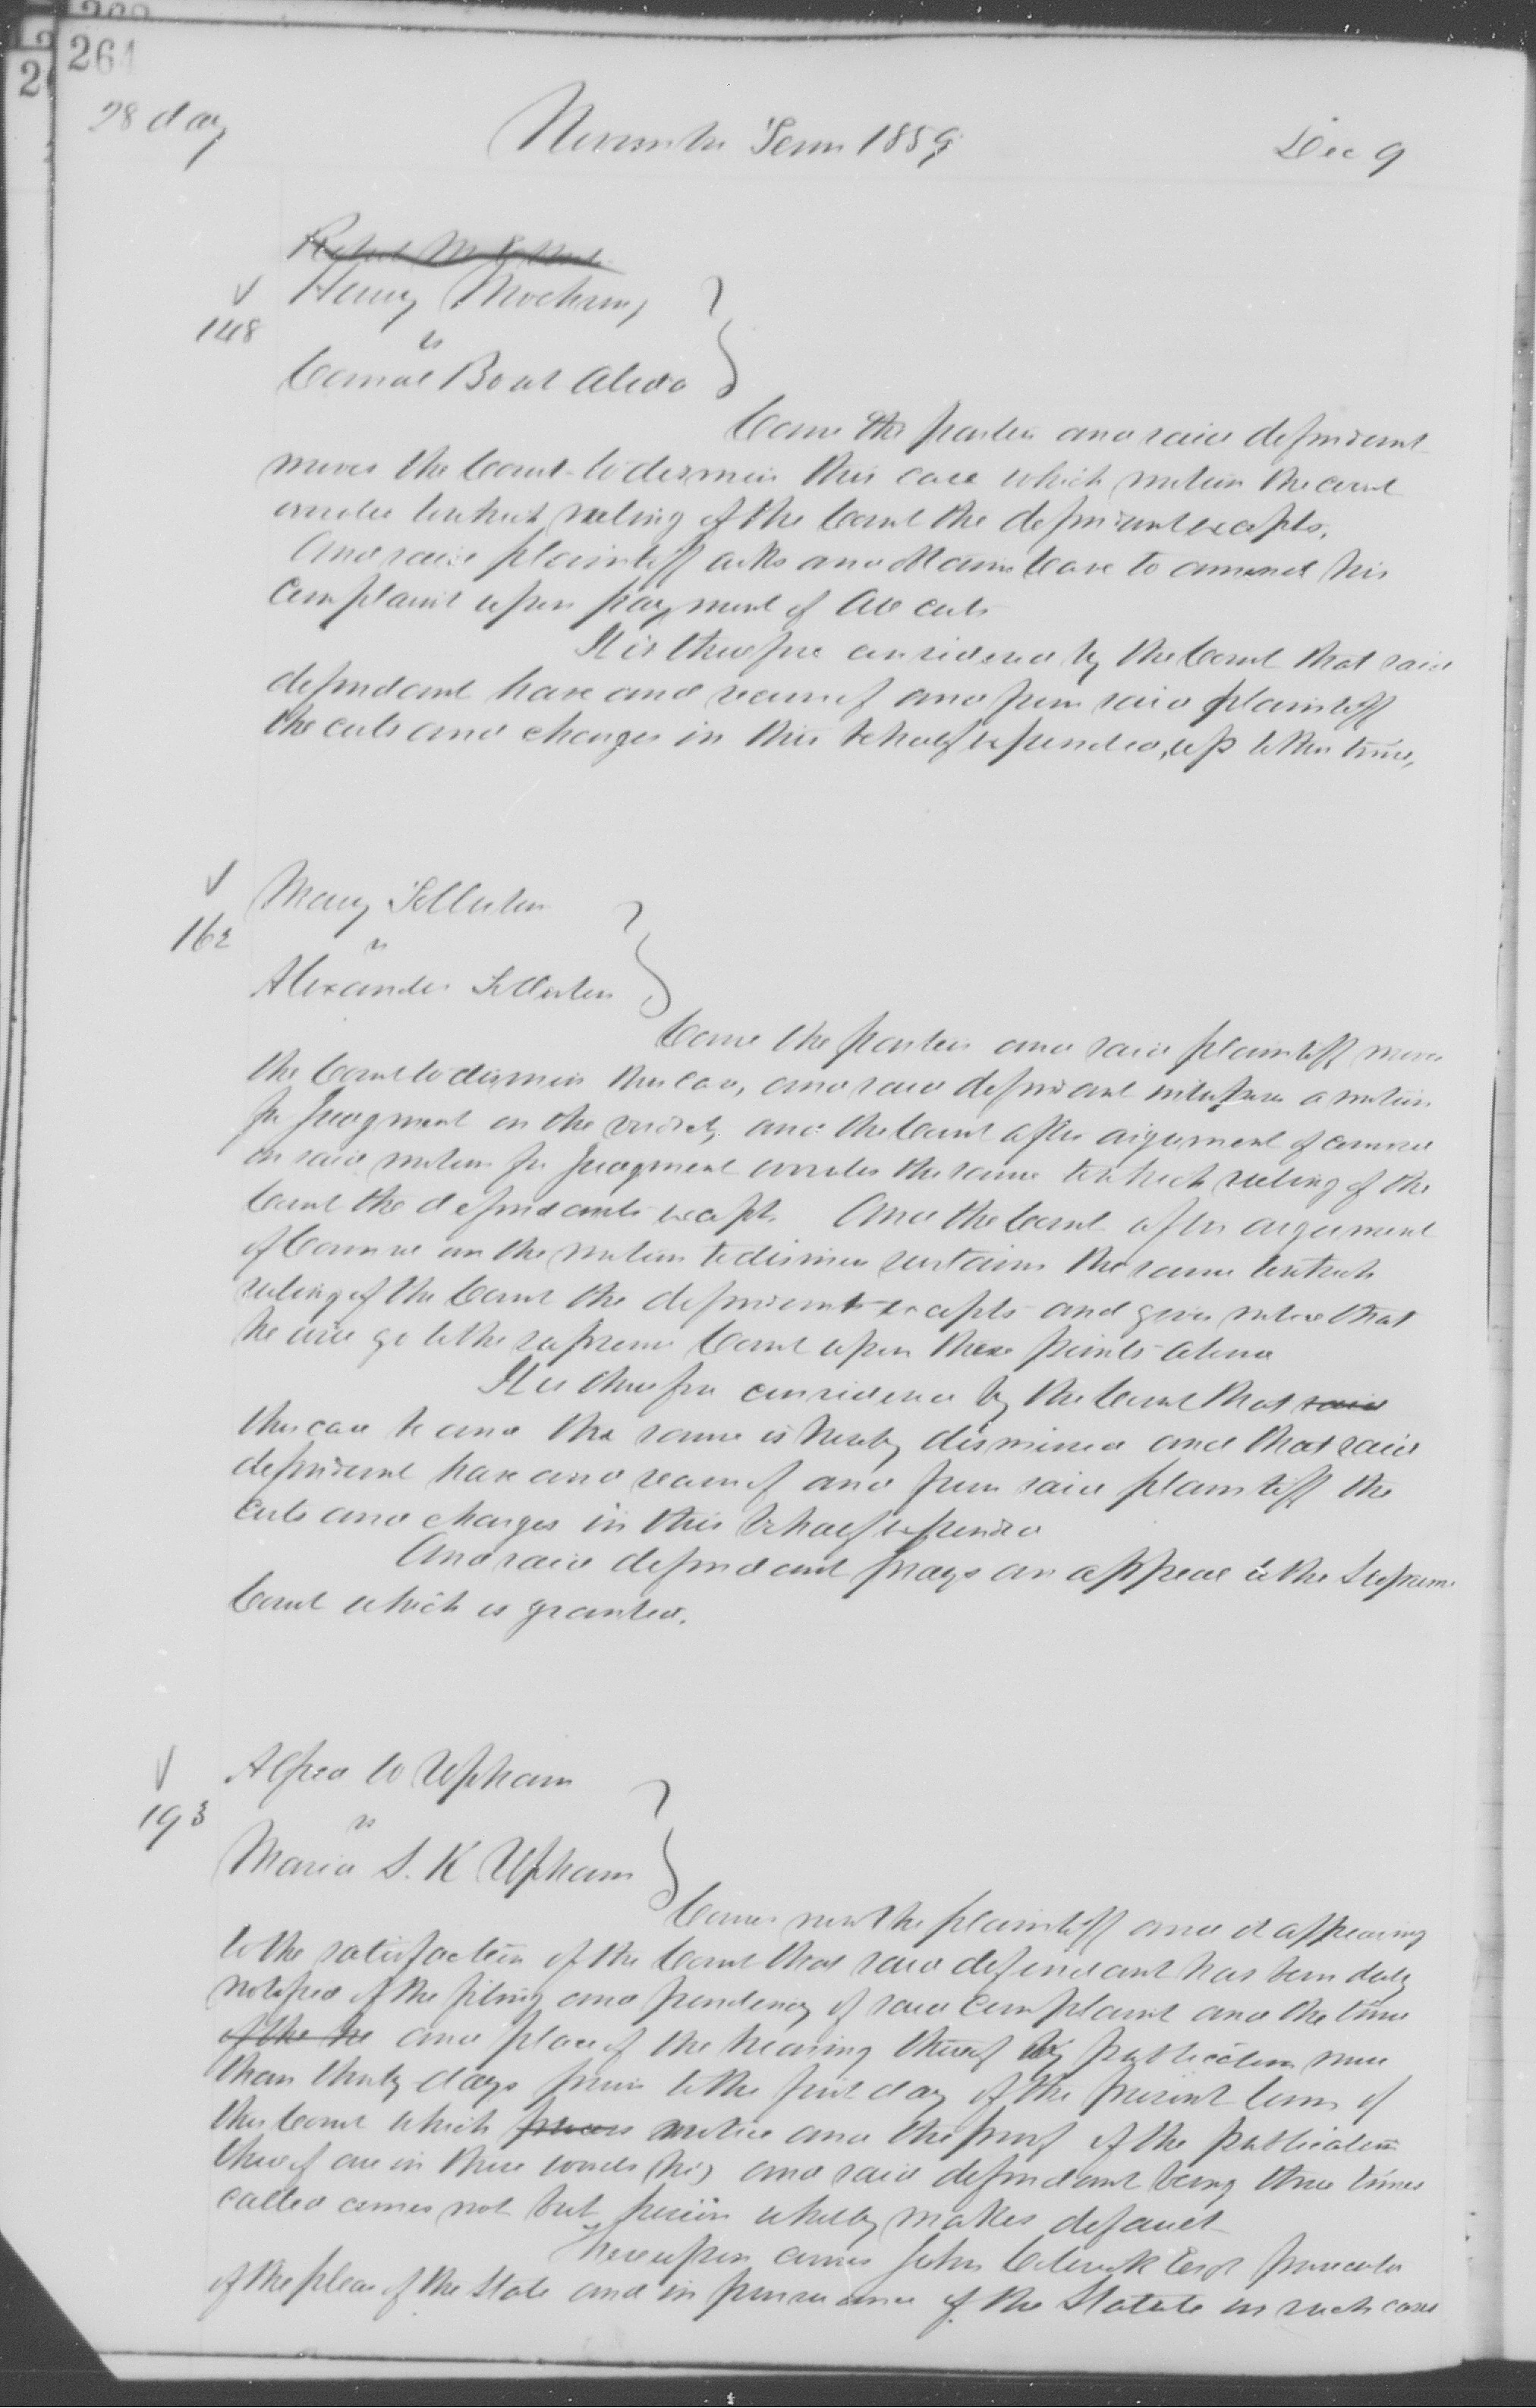 264
28 day November Term 1859 Dec 9
Henry Moehring
148 vs
Canal Boat Aledo
Come the parties and said defendant
moves the Court to dismiss this case which motion the court
overrules to which ruling of the Court the defendant excepts.
And said plaintiff asks and obtains leave to amend his
complaint upon payment of all costs
It is therefore considered by the Court that said
defendant have and recover of and from said plaintiff
the costs and charges in this behalf expended, up to this time,
Mary Tolleston
162 vs
Alexander Tolleston
Come the parties and said plaintiff moves
the Court to dismiss this case, and said defendant interposes a motion
for Judgment on the verdict, and the Court after argument of counsel
on said motion for Judgment overrules the same to which ruling of the
Court the defendants except. And the Court after argument
of Counsel on the motion to dismiss sustains the same to which
ruling of the Court the defendant excepts and gives notice that
he will go to the supreme Court upon these points alone
It is therefore considered by the Court that said
this case be and the same is hereby dismissed and that said
defendant have and recover of and from said plaintiff the
costs and charges in this behalf expended
And said defendant prays an appeal to the Supreme
Court which is granted.
Alfred W Upham
193 vs
Maria S. K Upham
Comes now the plaintiff and it appearing
to the satisfaction of the Court that said defendant has been duly
notified of the filing and pendency of said complaint and the time
of the he and place of the hearing thereof by publication more
than thirty days prior to the first day of the present term of
this Court which process notice and the proof of the publication
thereof are in these words (hi) and said defendant being three times
called comes not but herein wholly makes default
Thereupon comes John Colerick Esqr prosecutor
of the pleas of the State and in pursuance of the Statute in such case